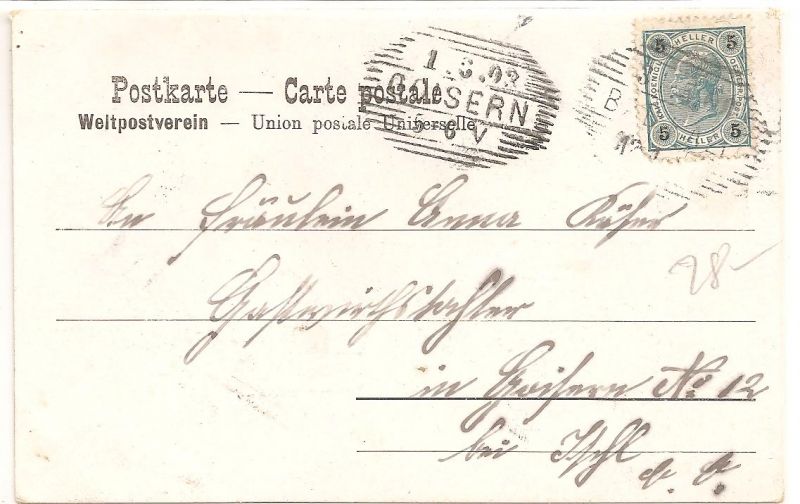 Postkarte — Carte postale
Weltpostverein — Union postale Universelle
1.3.03
GOISERN
5-6 V
5 HELLER 5
5 HELLER 5
An Fräulein Anna
Gastwirthstochter
in Goisern No 12
bei Ischl
28-